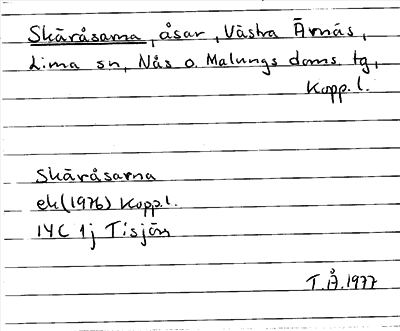 Skäråsarna, åsar, Västra Ärnäs,
Lima sn, Nås o. Malungs doms. tg,
Kopp. l.
Skäråsarna
ek (1976) Kopp. l.
14C 1j Tisjön
T.Å. 1977